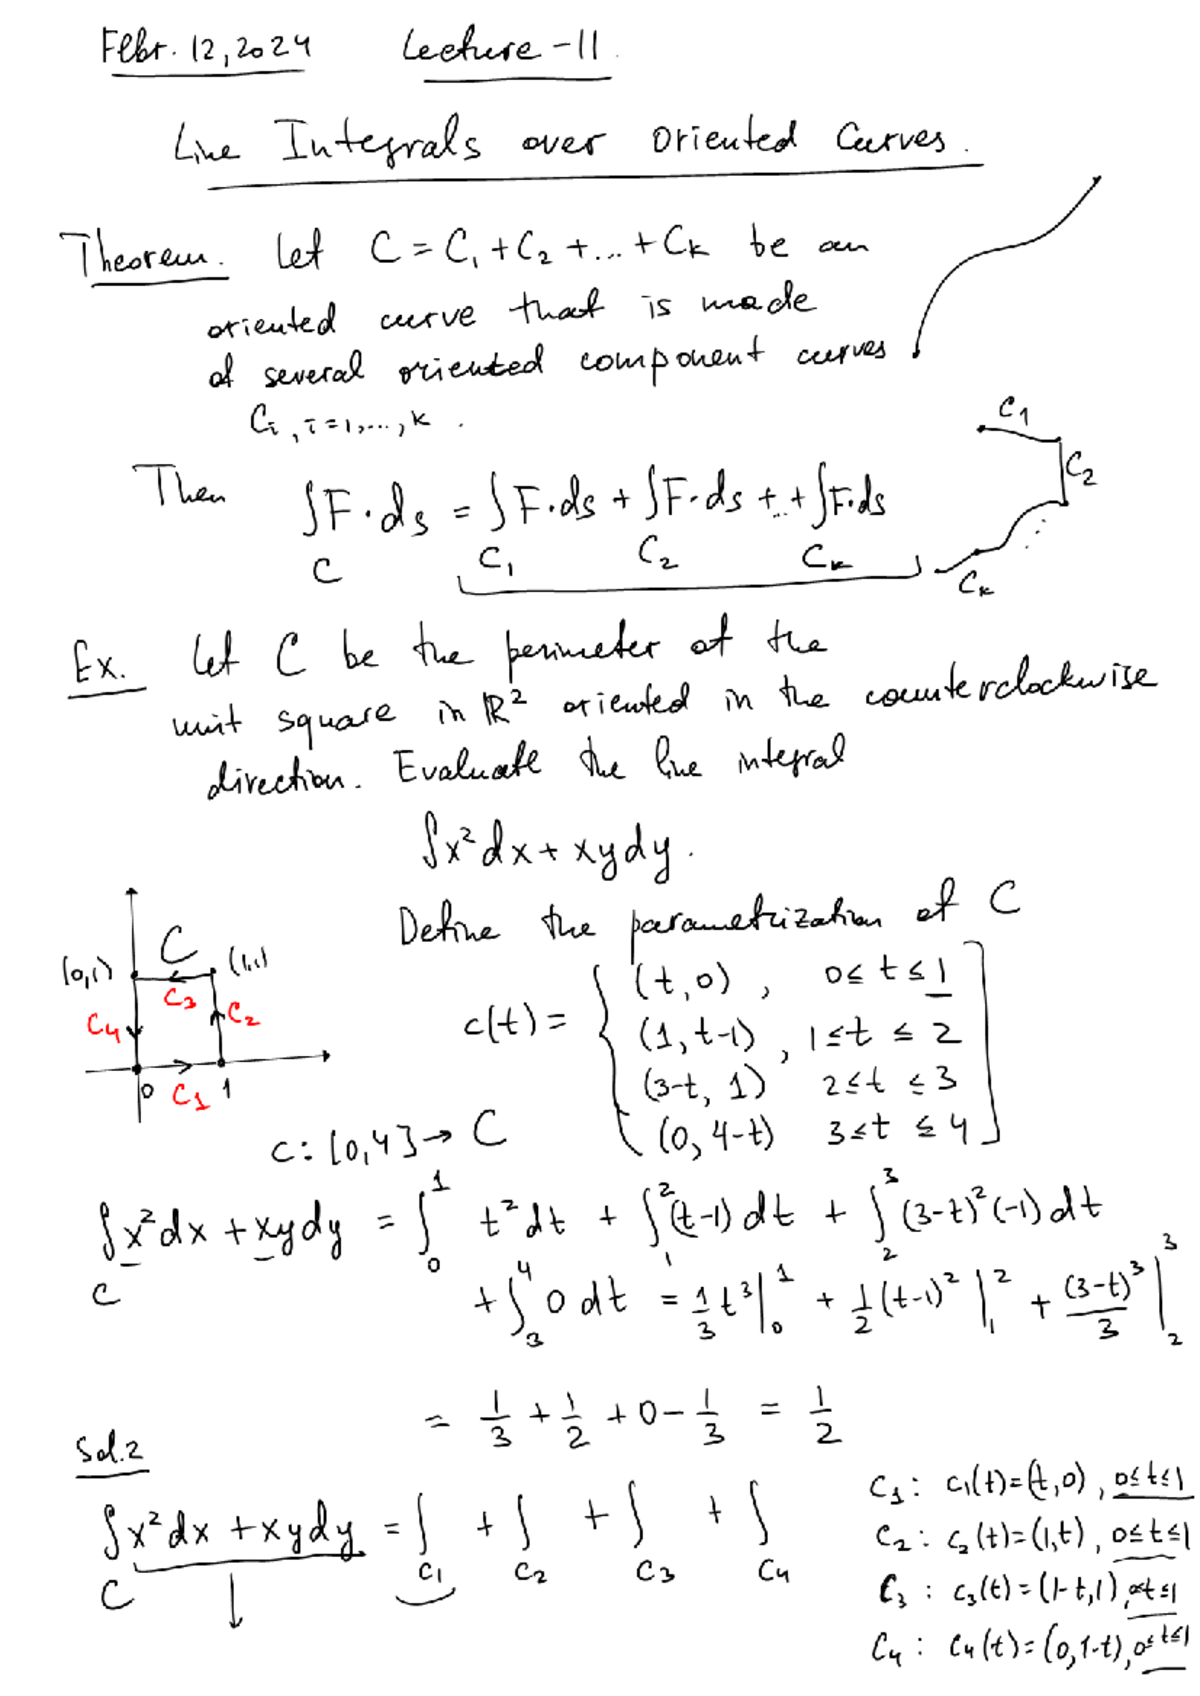 Febr. 12, 2024 Lecture - 11.
Line Integrals over Oriented Curves.
Theorem. Let C = C₁ + C₂ + ... + Cₖ be an
oriented curve that is made
of several oriented component curves
Cᵢ, i = 1, ..., k.
C₁
C₂
Cₖ
Then ∫_C F·ds = ∫_C₁ F·ds + ∫_C₂ F·ds + .. + ∫_Cₖ F·ds
Ex. Let C be the perimeter of the
unit square in ℝ² oriented in the counterclockwise
direction. Evaluate the line integral
∫x²dx + xydy.
Define the parametrization of C
(0,1) C (1,1)
C₃
C₄ C₂
0 C₁ 1
c(t) = { (t,0), 0 ≤ t ≤ 1
(1, t-1), 1 ≤ t ≤ 2
(3-t, 1) 2 ≤ t ≤ 3
(0, 4-t) 3 ≤ t ≤ 4 ]
c: [0,4] → C
∫_C x²dx + xydy = ∫₀¹ t²dt + ∫₁²(t-1)dt + ∫₂³(3-t)²(-1)dt
+ ∫₃⁴ 0 dt = 1/3 t³|₀¹ + 1/2 (t-1)²|₁² + (3-t)³/3 |₂³
= 1/3 + 1/2 + 0 - 1/3 = 1/2
Sol.2
∫_C x²dx + xydy = ∫_C₁ + ∫_C₂ + ∫_C₃ + ∫_C₄
C₁: c₁(t) = (t,0), 0 ≤ t ≤ 1
C₂: c₂(t) = (1,t), 0 ≤ t ≤ 1
C₃: c₃(t) = (1-t,1), 0 ≤ t ≤ 1
C₄: c₄(t) = (0,1-t), 0 ≤ t ≤ 1